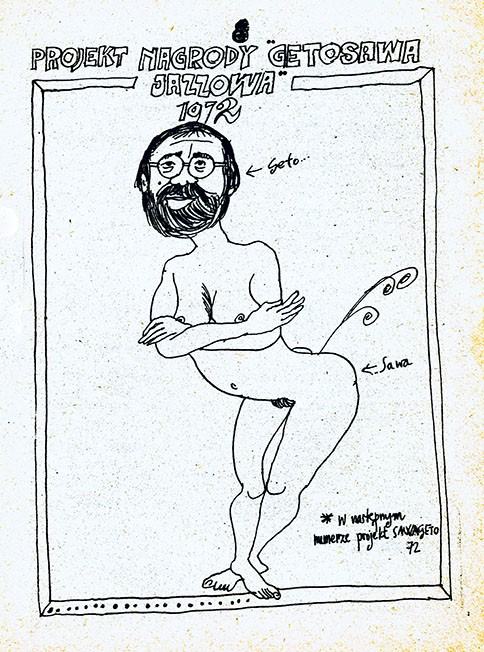 8
PROJEKT NAGRODY "GETOSAWA
JAZZOWA"
1972
← Geto...
← Sawa
* W następnym
numerze projekt SAWAGETO
72